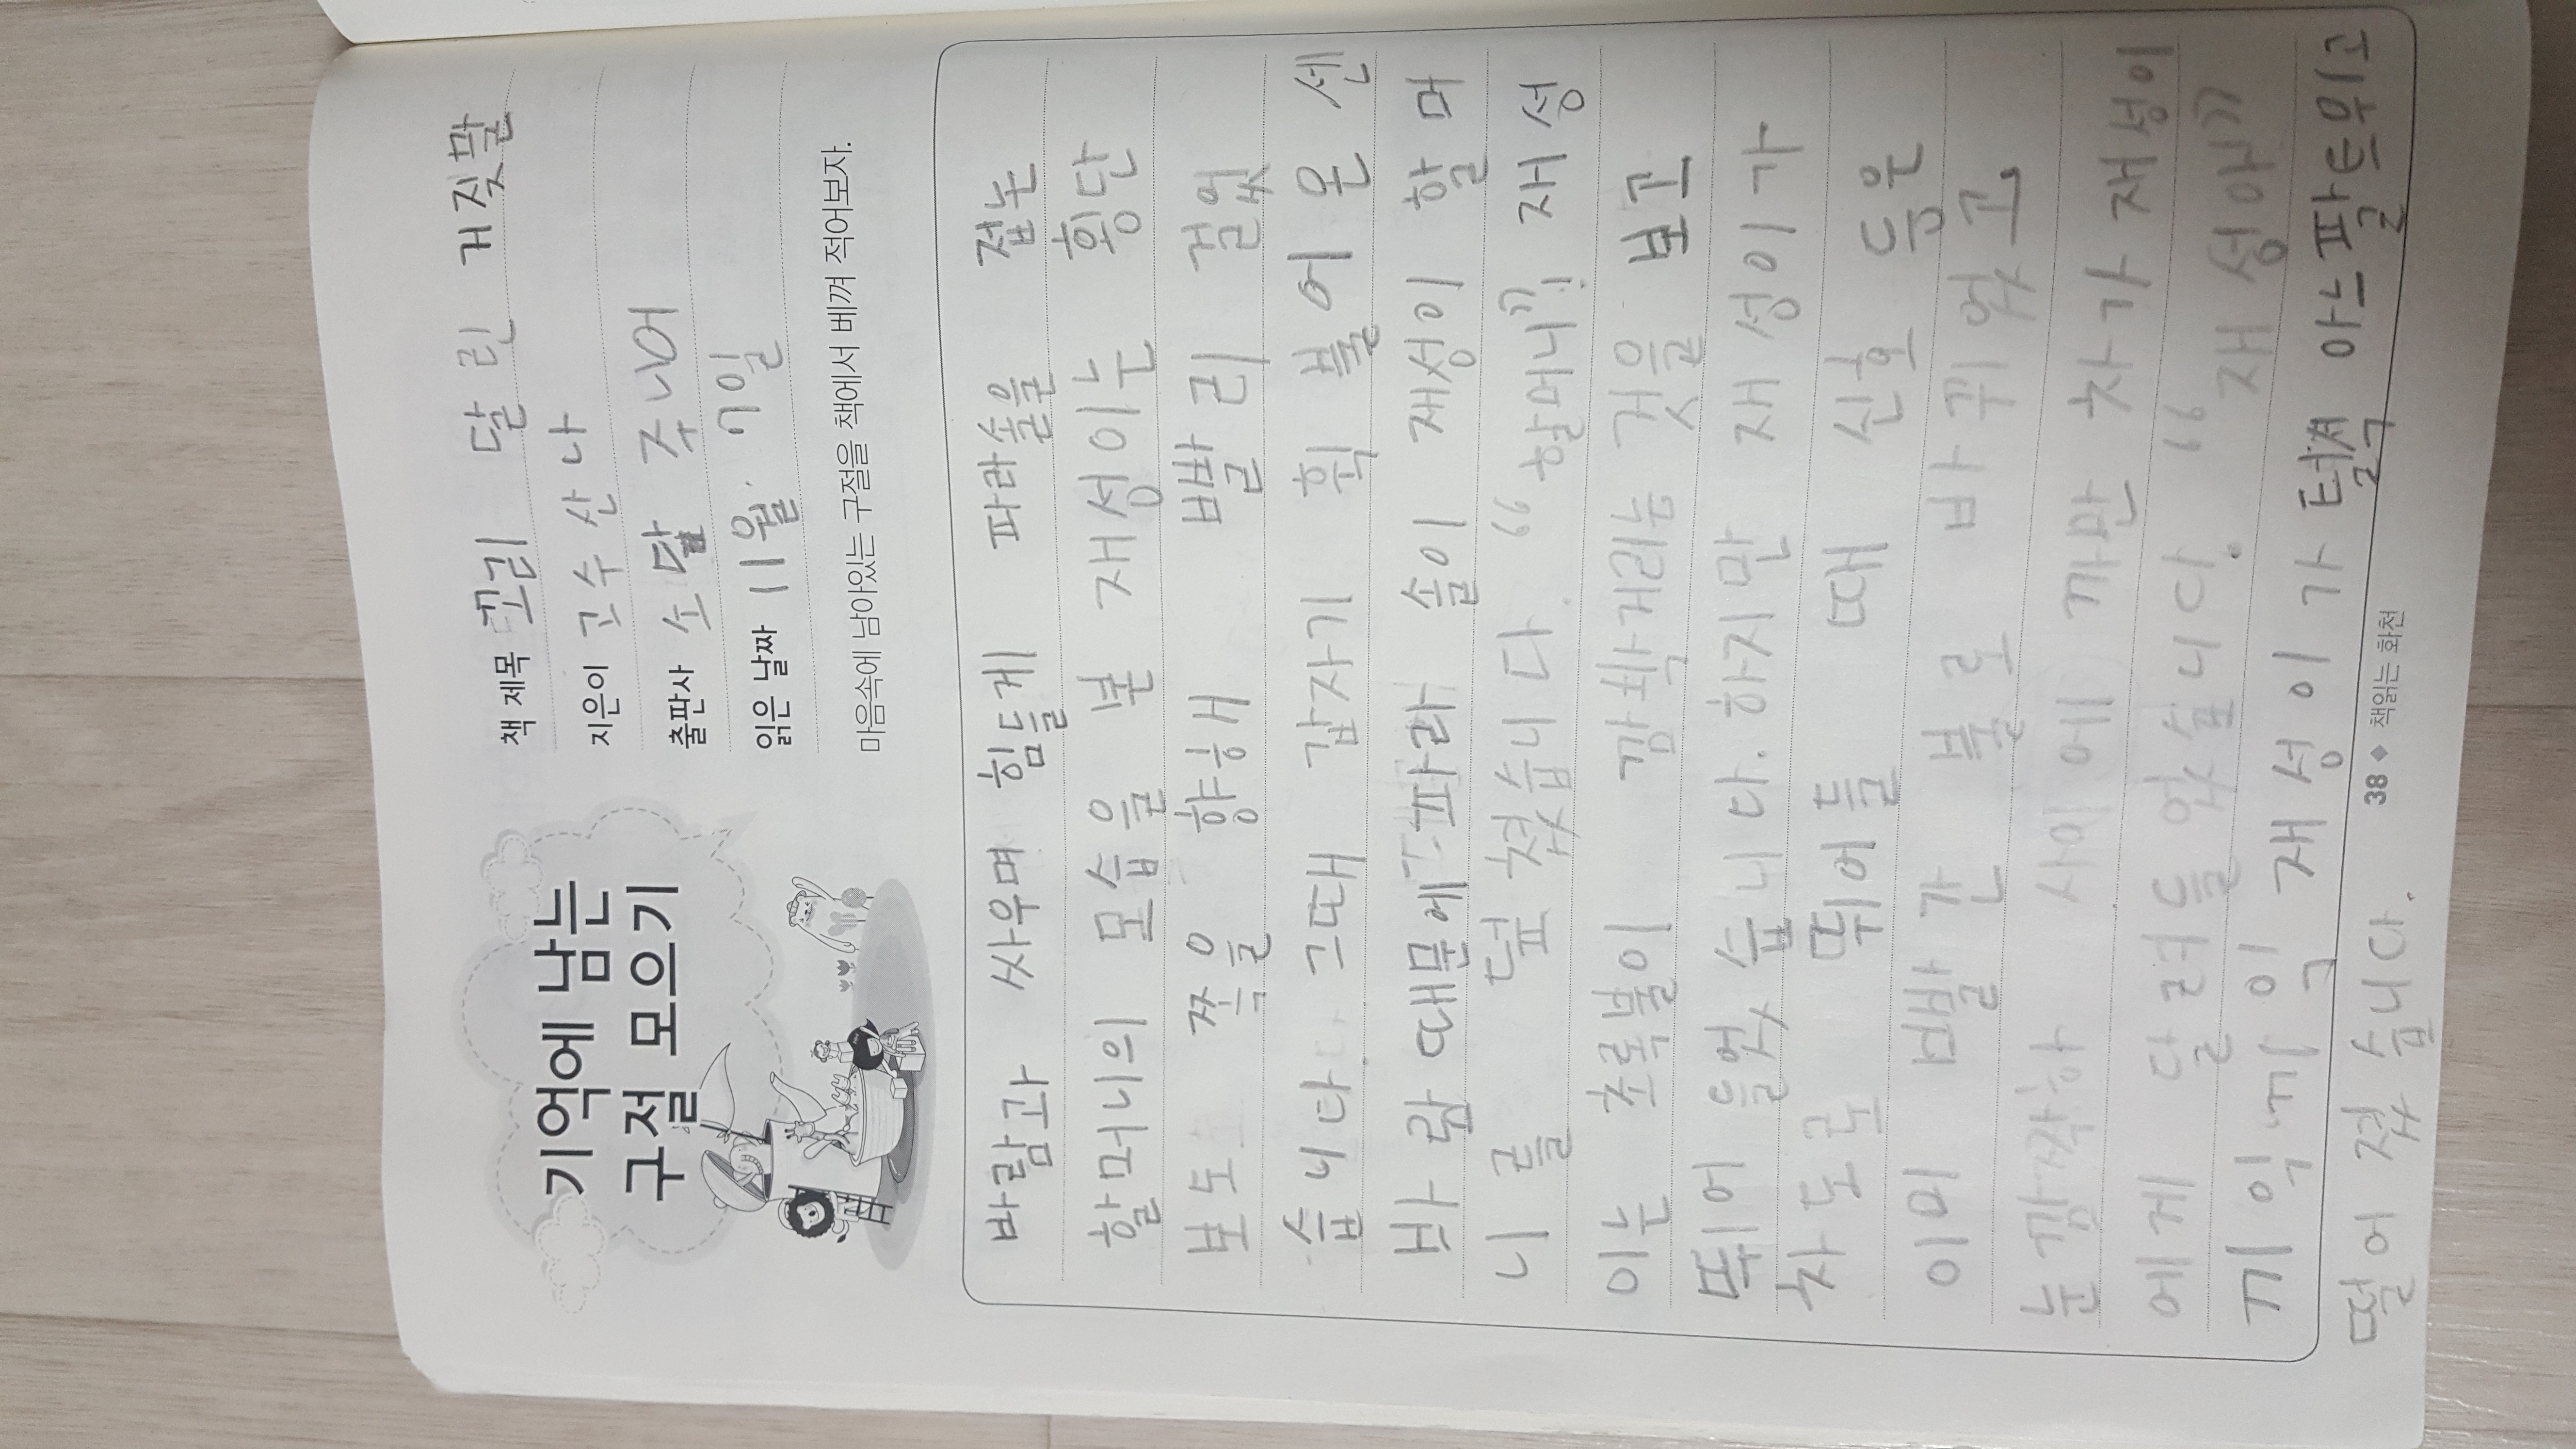 기억에 남는
구절 모으기
책 제목 꼬리 달린 거짓말
지은이 고수산나
출판사 소담 주니어
읽은 날짜 11월 7일
마음속에 남아있는 구절을 책에서 베껴 적어보자.
바람과 싸우며 힘들게 파라솔을 접는
할머니의 모습을 본 재성이는 횡단
보도 쪽을 향해 빨리 걸었
습니다. 그때 갑자기 휙 불어온 센
바람 때문에 파라솔이 재성이 할머
니를 덮쳤습니다. "할머니!" 재성
이는 초록불이 깜빡거리는 것을 보고
뛰어들었습니다. 하지만 재성이가
차도로 뛰어들 때 신호등은
이미 빨간불로 바뀌었고
눈 깜짝할 사이에 까만 차가 재성이
에게 달려들었습니다. "재성아!"
끼익끼익 재성이가 털썩 아스팔트위로
떨어졌습니다.
38 ◆ 책읽는 화천